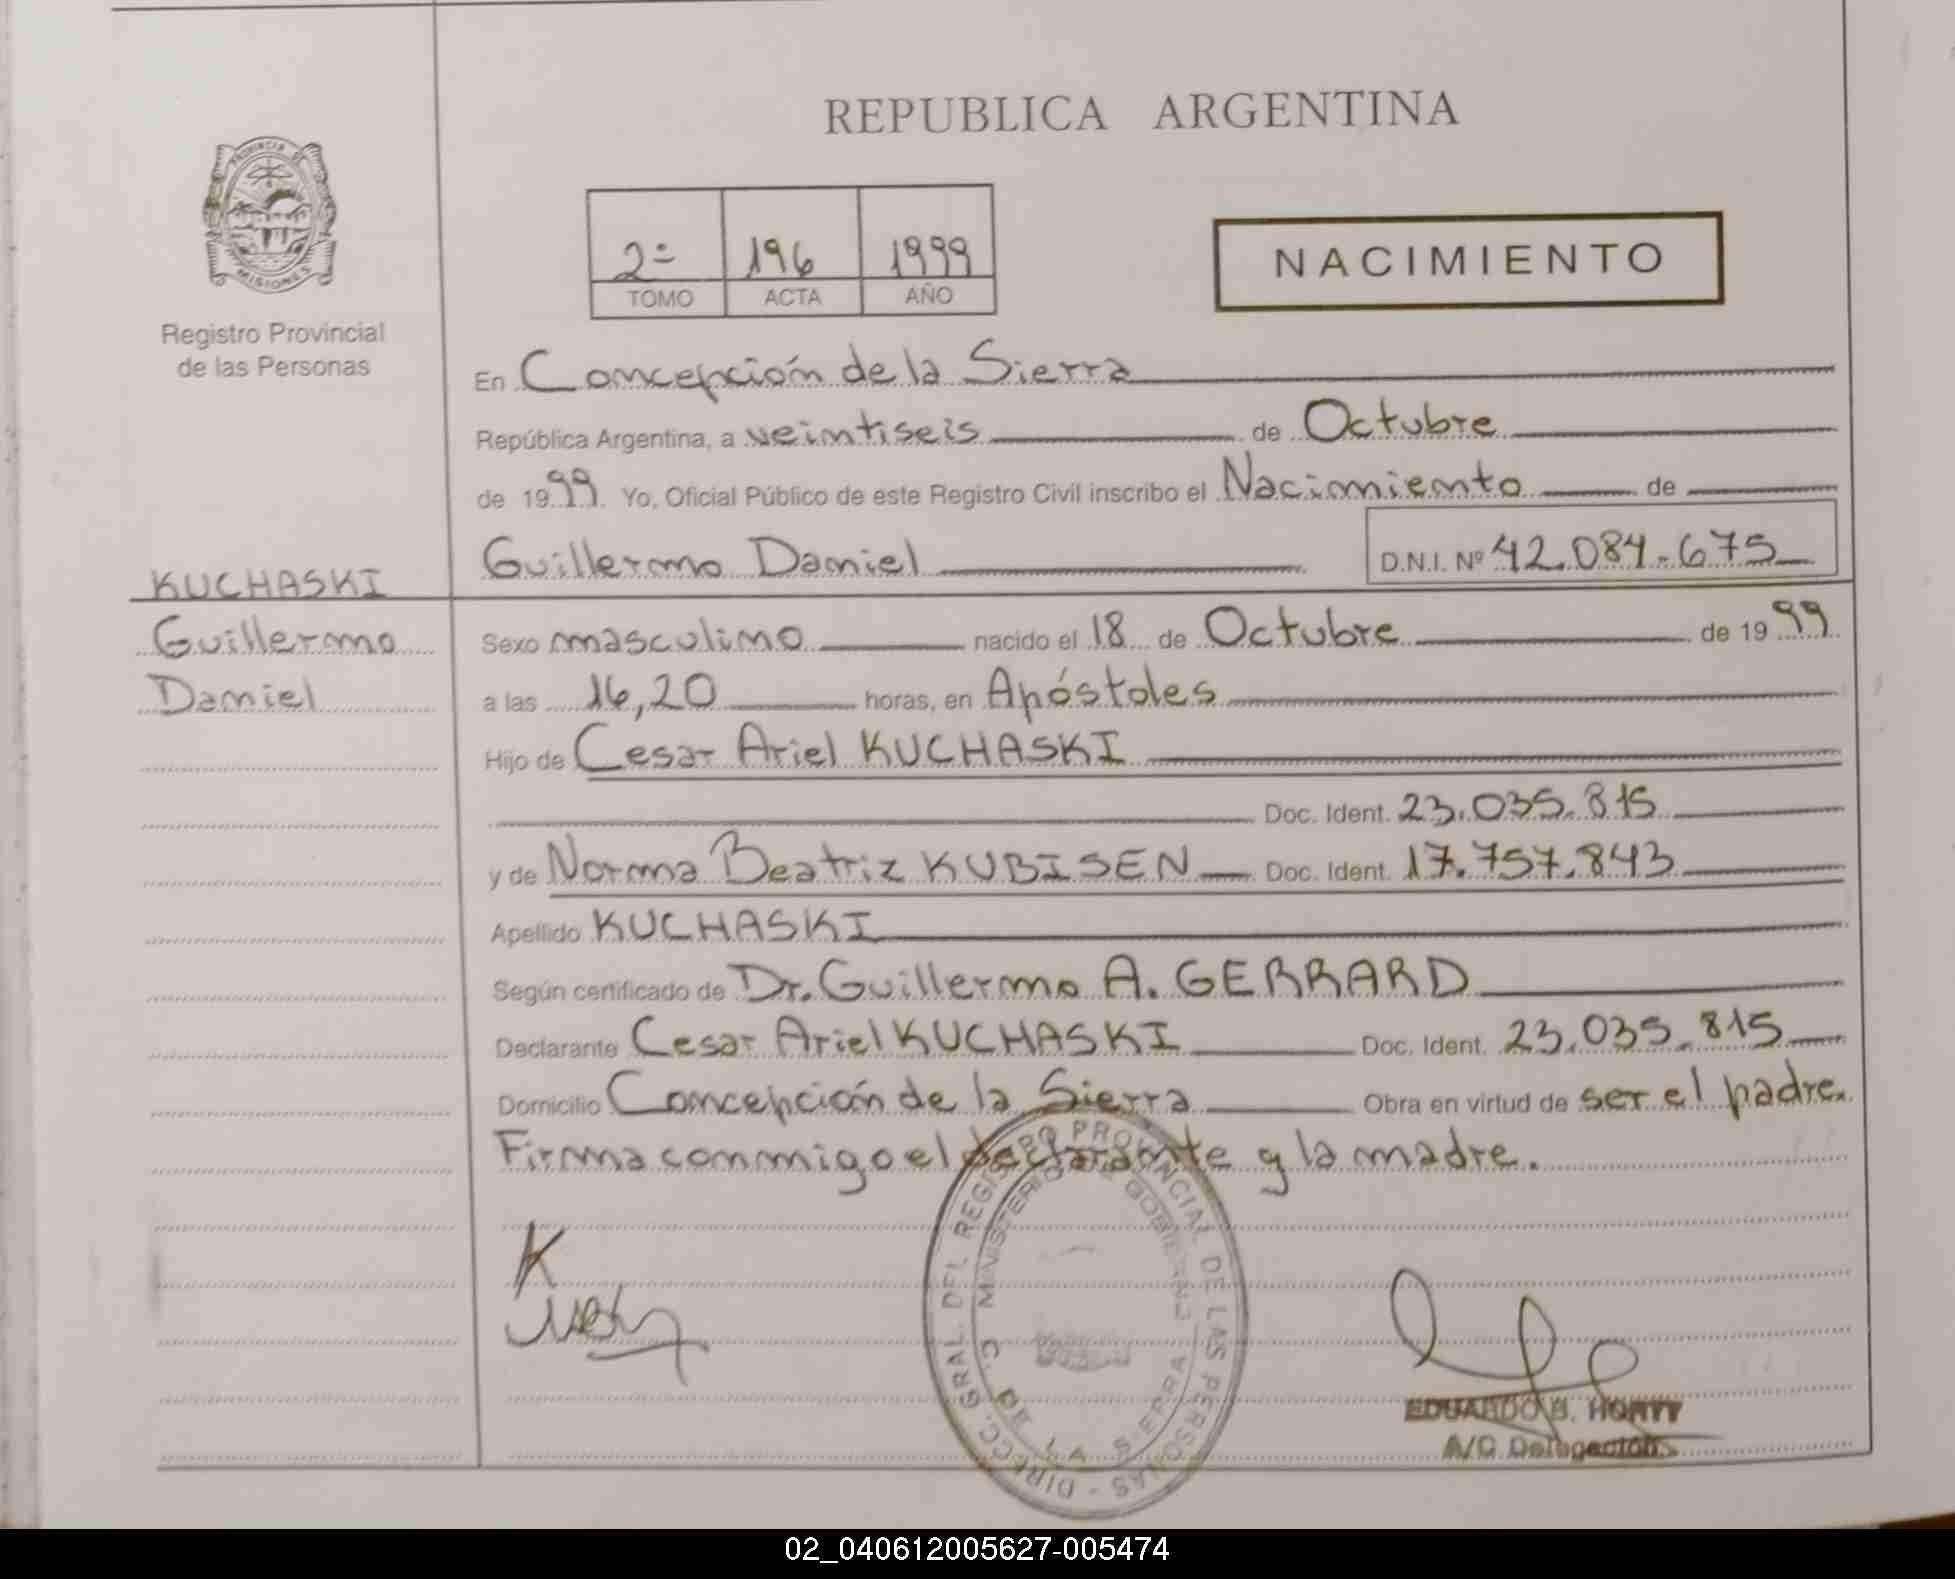 REPUBLICA ARGENTINA
PROVINCIA DE
MISIONES
Registro Provincial
de las Personas
2º 196 1999
TOMO ACTA AÑO
NACIMIENTO
En Concepción de la Sierra
República Argentina, a veintiseis de Octubre
de 1999. Yo, Oficial Público de este Registro Civil inscribo el Nacimiento de
Guillermo Daniel D.N.I. Nº 42.084.675
KUCHASKI
Guillermo
Daniel
Sexo masculino nacido el 18 de Octubre de 1999
a las 16,20 horas, en Apóstoles
Hijo de Cesar Ariel KUCHASKI
Doc. Ident. 23.035.815
y de Norma Beatriz KUBISEN Doc. Ident. 17.757.843
Apellido KUCHASKI
Según certificado de Dr. Guillermo A. GERRARD
Declarante Cesar Ariel KUCHASKI Doc. Ident. 23.035.815
Domicilio Concepción de la Sierra Obra en virtud de ser el padre.
Firma conmigo el declarante y la madre.
DIRECC. GRAL. DEL REGISTRO PROVINCIAL DE LAS PERSONAS
MINISTERIO DE GOBIERNO
C. DE LA SIERRA
EDUARDO
A/C Delegación
02_040612005627-005474